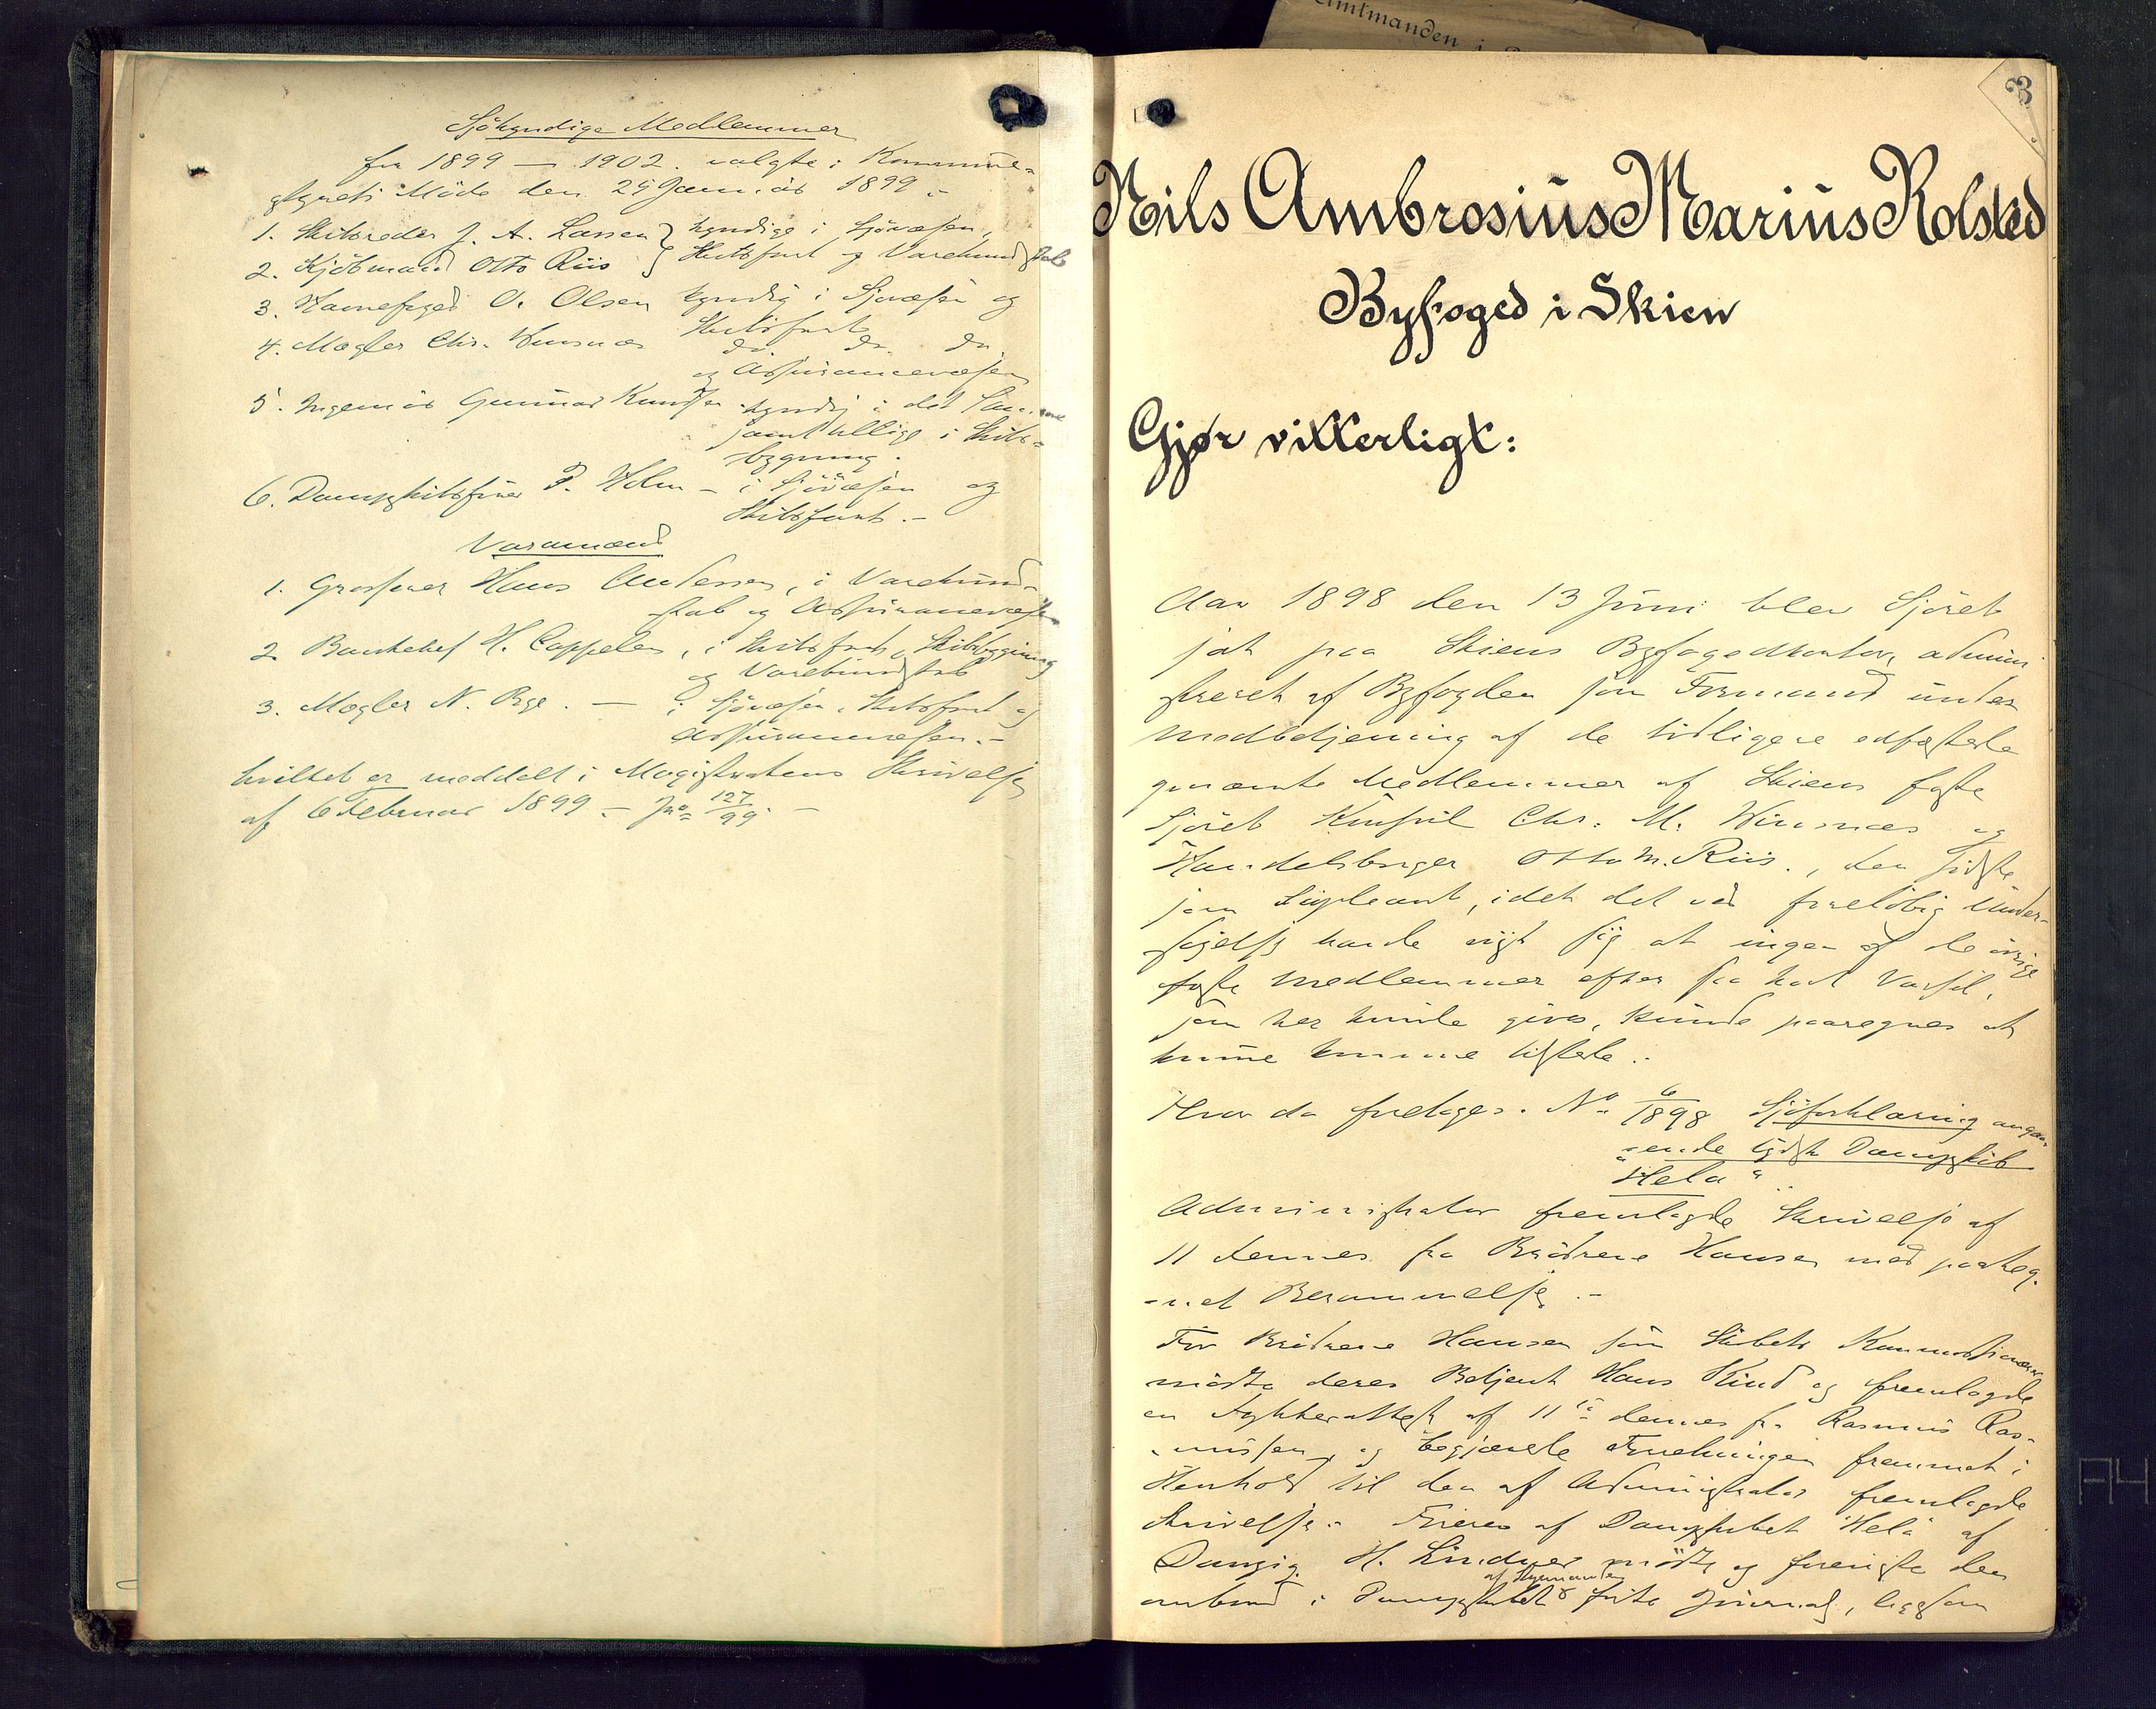 Sjökyndige Medlemmer
fra 1899 – 1902. valgte i Kommune-
styrets Möde den 25 Januar 1899 :-
1. Skibsreder J. A. Larsen } kyndige i Sjövæsen,
2. Kjöbmand Otto Riis } Skibsfart og Varekundskab
3. Havnefoged O. Olsen kyndig i Sjövæsen og
Skibsfart
4. Mægler Chr. Winsnes do. do. do.
og Assurancevæsen
5. Ingeniör Gunnar Knudsen kyndig i det Samme
samt tillige i Skibs-
bygning.
6. Dampskibsförer P. Holm – i Sjövæsen og
Skibsfart. –
Varamænd
1. Grosserer Hans Andersen, i Varekund-
skab og Assurancevæsen
2. Bankchef H. Cappelen, i Skibsfart, Skibsbygning
og Varekundskab
3. Mægler N. Bye. — i Sjövæsen, Skibsfart og
Assurancevæsen. –
hvilket er meddelt i Magistratens Skrivelse
af 6 Februar 1899 – Jno 127/99. –
Amtmanden i
3
Nils Ambrosius Marius Kolsted
Byfoged i Skien
Gjør vitterligt:
Aar 1898 den 13 Juni blev Sjöret
sat paa Skiens Byfogedkontor, admini
streret af Byfogden som Formand under
Medbetjening af de tidligere edfæstede
Medlemmer af Skiens faste
Sjöret Konsul Chr. M. Winsnes og
Handelsborger Otto M. Riis., den sidste
som Supleant, idet det ved foreløbig Under-
søgelse havde vist sig at ingen af de övrige
faste Medlemmer efter saa kort Varsel,
som her kunde gives, kunde paaregnes at
kunne komme tilstede. .
Hvor da foretoges. No 6/1898 Sjöforklaring angaa-
ende tydsk Dampskib
"Hela" ..
Administrator fremlagde Skrivelse af
11 dennes fra Brödrene Hansen med paateg-
net Berammelse. –
For Brödrene Hansen som Skibets Kommissionærer
mödte deres Betjent Hans Rund og fremlagde
en af 11te dennes fra Rasmus Ras-
mussen, og begjærede Forretningen fremmet i
Henhold til den af Administrator fremlagde
Skrivelse. – Föreren af Dampskibet Hela af
Danzig. H. Lindner mödte og foreviste den
ombord i Dampskibet af Styrmanden förte Journal, ligesom